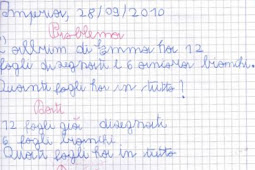 Imperia, 28/09/2010
Problema
L'album di Emma ha 12
fogli disegnati e 6 ancora bianchi.
Quanti fogli ha in tutto?
Dati
12 fogli già disegnati
6 fogli bianchi
Quanti fogli ha in tutto